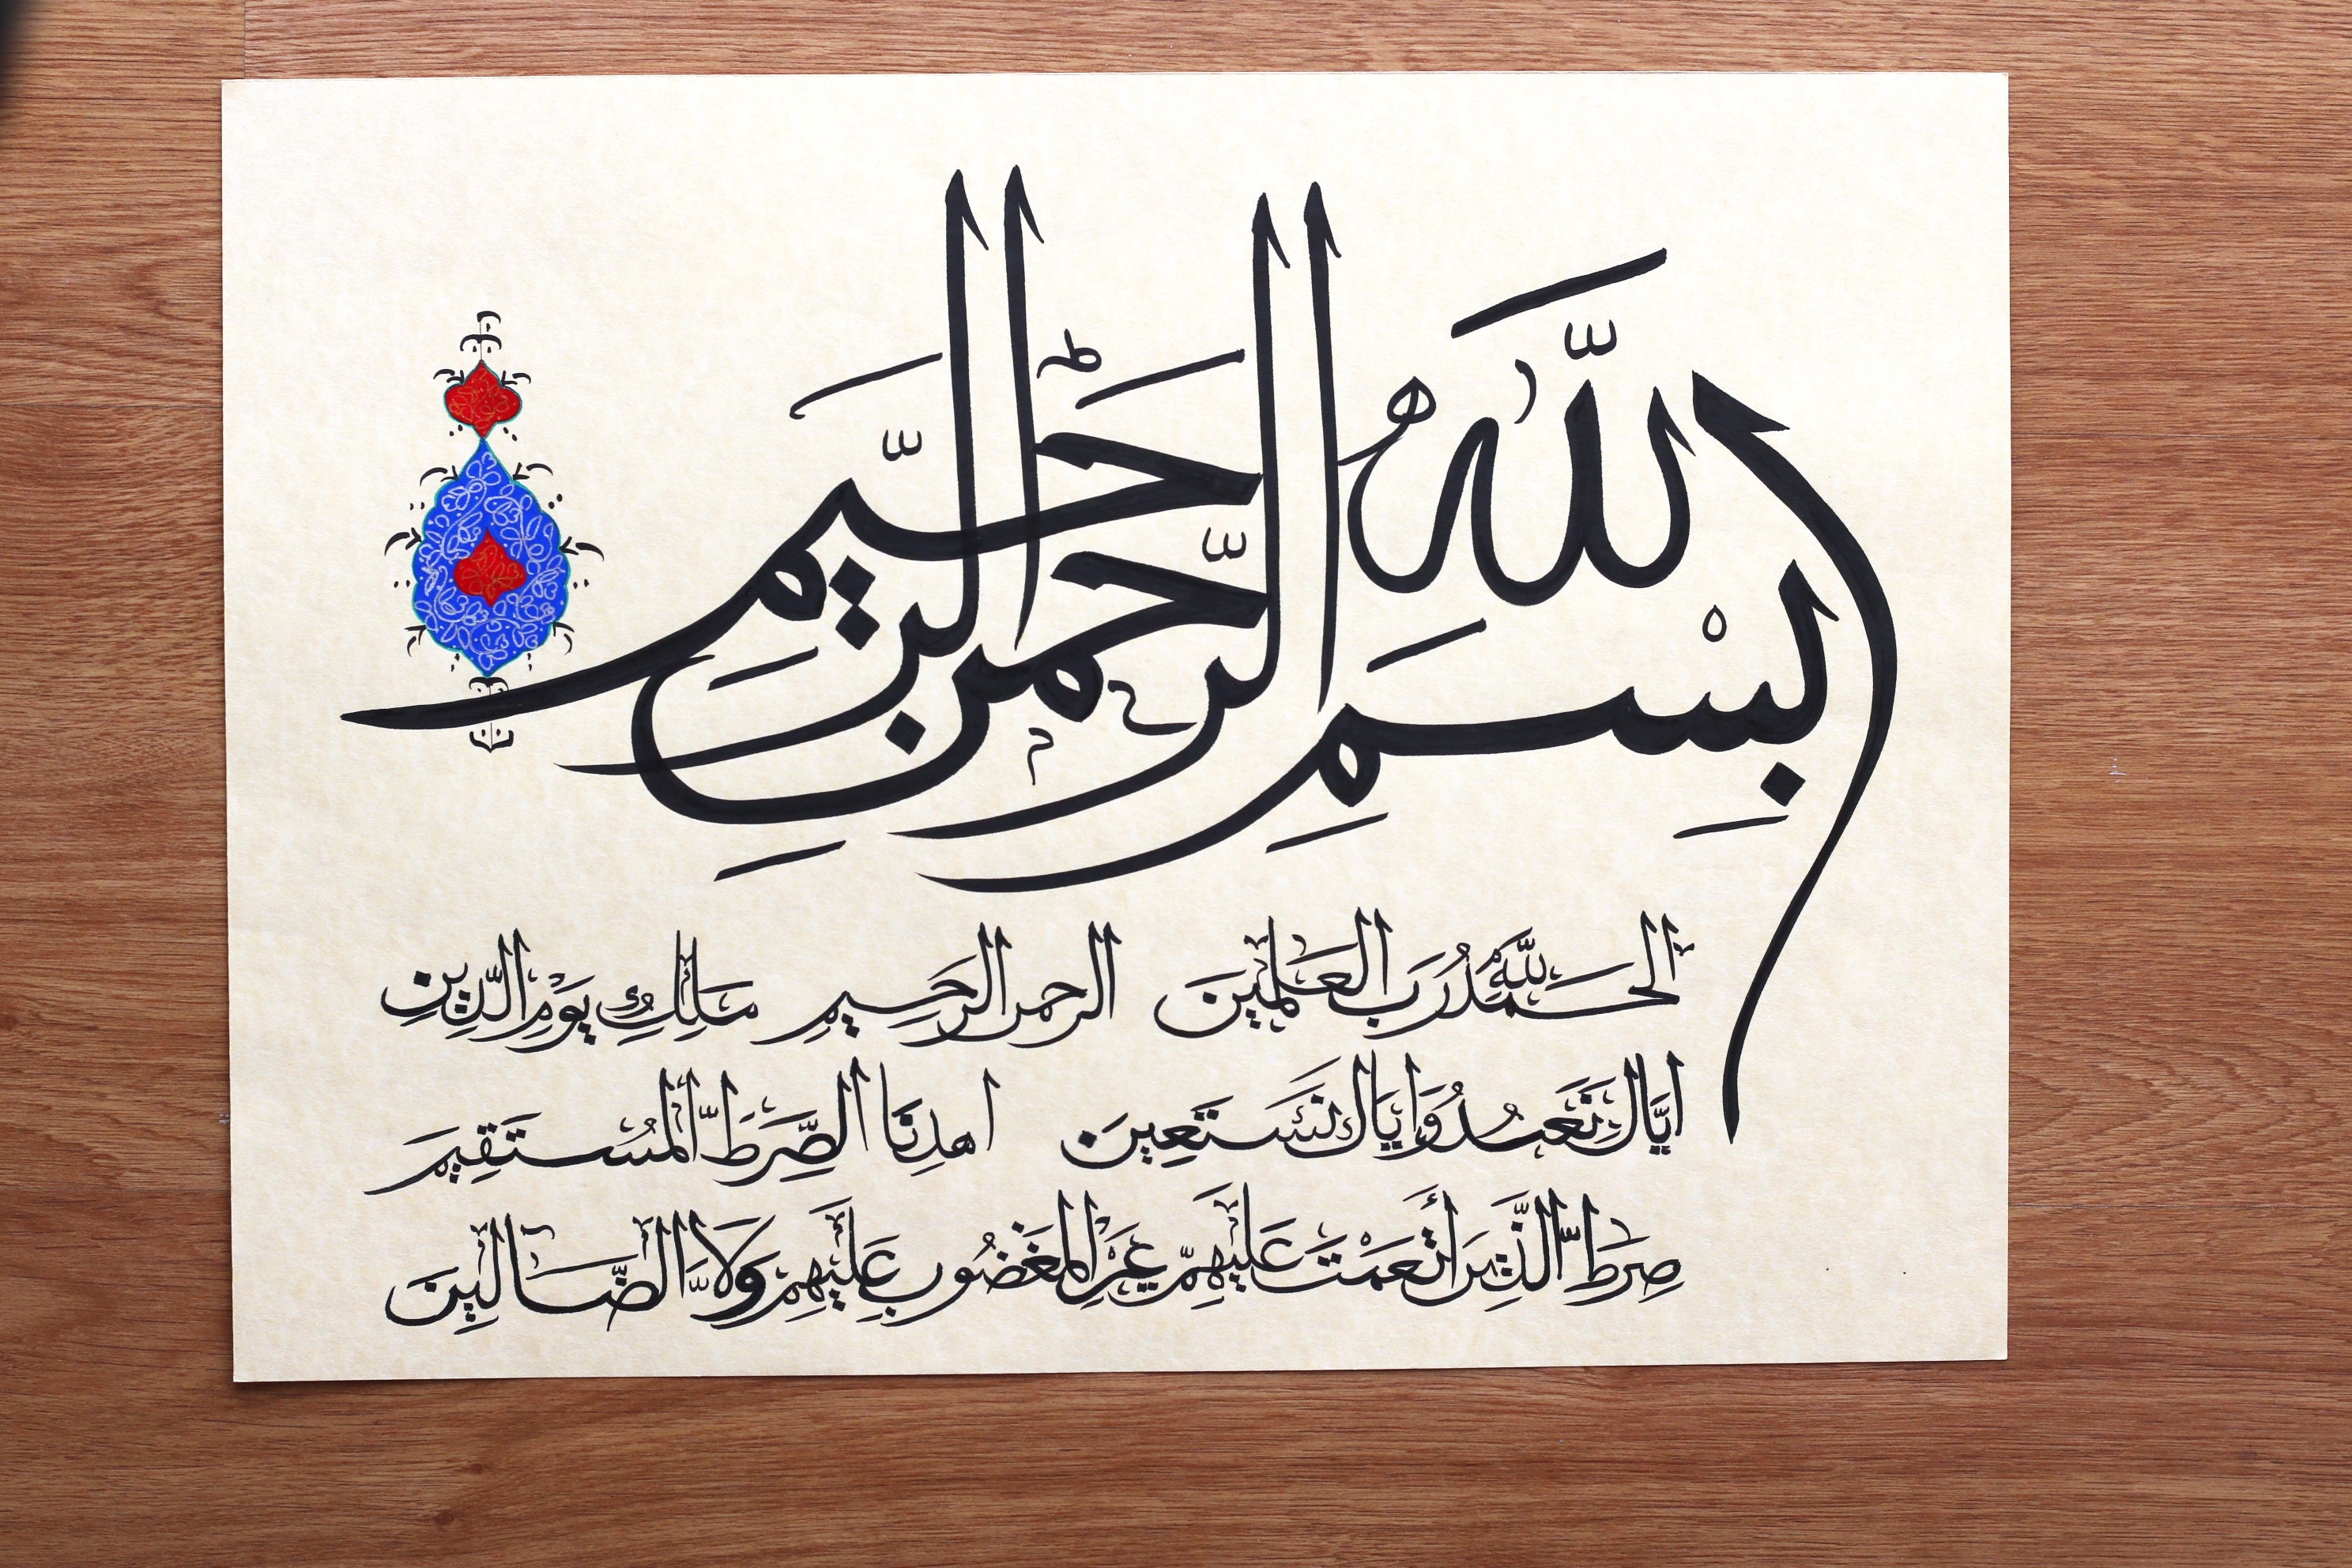 بِسْمِ اللَّهِ الرَّحْمٰنِ الرَّحِيمِ
الحَمدُ للَّهِ رَبِّ العَالَمِينَ الرحمن الرَحِيمِ مَالِكِ يَوْمِ الدِّينِ
ايَّاكَ نَعْبُدُ وَايَاكَ نَسْتَعِينَ اهدِنَا الصِّرَطَ المُستَقِيمَ
صِرَطَ الَّذِينَ أَنْعَمْتَ عَلَيْهِمْ غَيْرِ المَغْضُوبِ عَلَيْهِمْ وَلاَ الضَّالِّينَ